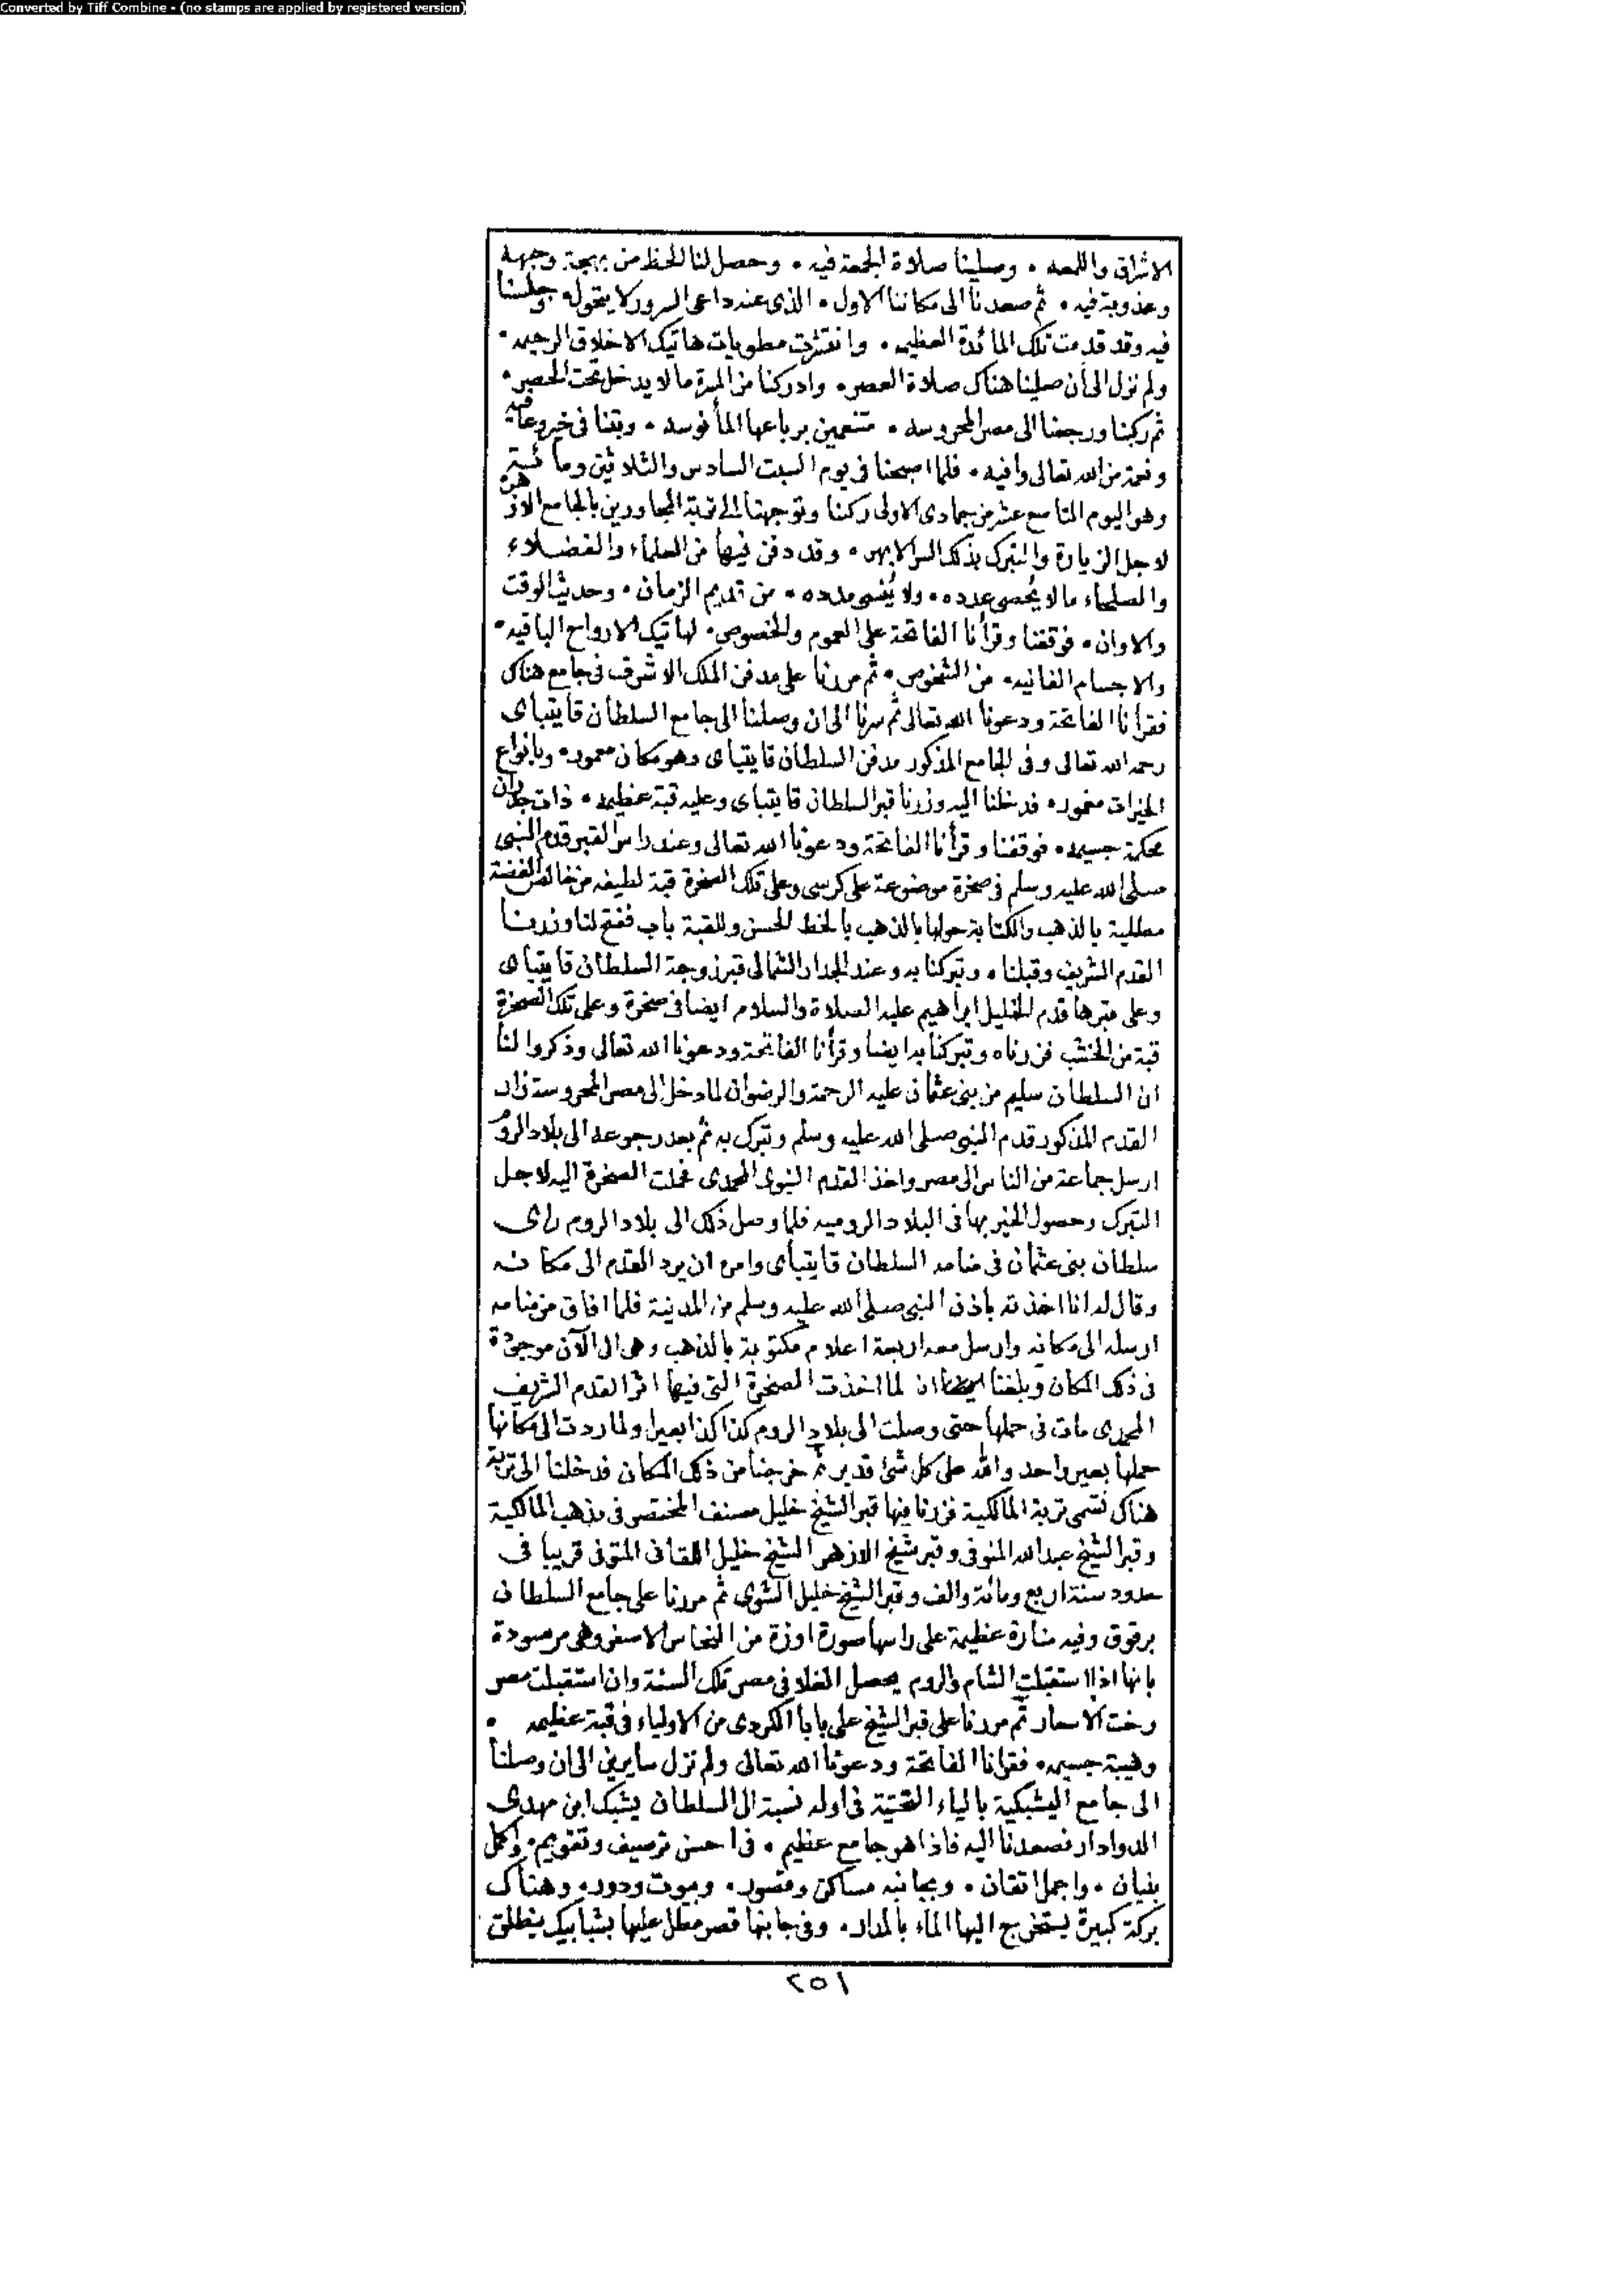 Converted by Tiff Combine - (no stamps are applied by registered version)
الاشراق واللمعه . وصلينا صلاة الجمعة فيه . وحصل لنا الحظ من بهجة وجهه
وعذوبة فيه . ثم صعدنا الى مكاننا الاول . الذى عند داعى السرور لا يتحول . وجلسنا
فيه وقد قدمت تلك المائدة العظيمه . وانتشرت مطويات هاتيك الاخلاق الرحيمه .
ولم نزل الى أن صلينا هناك صلاة العصر . وادركنا من المسرة ما لا يدخل تحت الحصر .
ثم ركبنا ورجعنا الى مصر المحروسه . متنعمين برباعها المأنوسه . وبتنا فى خير وعافيه
ونعمة من الله تعالى وافيه . فلما اصبحنا فى يوم السبت السادس والثلاثين ومائتين
وهو اليوم التاسع عشر من جمادى الاولى ركبنا وتوجهنا الى تربة المجاورين بالجامع الازهر
لاجل الزيارة والتبرك بذلك السر الابهر . وقد دفن فيها من العلماء والفضلاء
والصلحاء ما لا يُحصى عدده . ولا يُنسى مدده . من قديم الزمان . وحديث الوقت
والاوان . فوقفنا وقرأنا الفاتحة على العموم والخصوص . لهاتيك الارواح الباقيه .
والاجسام الفانيه . من الشخوص . ثم مررنا على مدفن الملك الاشرف فى جامع هناك
فقرأنا الفاتحة ودعونا الله تعالى ثم سرنا الى ان وصلنا الى جامع السلطان قايتباى
رحمه الله تعالى وفى الجامع المذكور مدفن السلطان قايتباى وهو مكان معمور . وبانواع
الخيرات مغمور . فدخلنا اليه وزرنا قبر السلطان قايتباى وعليه قبة عظيمه . ذات جدران
محكمة جسيمه . فوقفنا وقرأنا الفاتحة ودعونا الله تعالى وعند راس القبر قدم النبى
صلى الله عليه وسلم فى صخرة موضوعة على كرسى وعلى تلك الصخرة قبة لطيفه من خالص الفضة
مطلية بالذهب والكتابة حولها بالذهب بالخط الحسن وللقبة باب ففتح لنا وزرنا
القدم الشريف وقبلناه وتبركنا به وعند الجدار الشمالى قبر زوجة السلطان قايتباى
وعلى قبرها قدم الخليل ابراهيم عليه الصلاة والسلام ايضا فى صخرة وعلى تلك الصخرة
قبة من الخشب فزرناه وتبركنا به ايضا وقرأنا الفاتحة ودعونا الله تعالى وذكروا لنا
ان السلطان سليم من بنى عثمان عليه الرحمة والرضوان لما دخل الى مصر المحروسة زار
القدم المذكور قدم النبى صلى الله عليه وسلم وتبرك به ثم بعد رجوعه الى بلاد الروم
ارسل جماعة من الناس الى مصر واخذ القدم النبوى المحمدى فحملت الصخرة اليه لاجل
التبرك وحصول الخير بها فى البلاد الروميه فلما وصل ذلك الى بلاد الروم راى
سلطان بنى عثمان فى منامه السلطان قايتباى وامره ان يرد القدم الى مكانه
وقال له انا اخذته باذن النبى صلى الله عليه وسلم من المدينة فلما افاق من منامه
ارسله الى مكانه وارسل معه اربعة اعلام مكتوبة بالذهب وهى الى الآن موجودة
فى ذلك المكان وبلغنا ايضا ان لما اخذت الصخرة التى فيها اثر القدم الشريف
المحمدى مات فى حملها حتى وصلت الى بلاد الروم كذا كذا بعيرا ولما ردت الى مكانها
حملها بعير واحد والله على كل شئ قدير ثم خرجنا من ذلك المكان فدخلنا الى تربة
هناك تسمى تربة المالكية فزرنا فيها قبر الشيخ خليل مصنف المختصر فى مذهب المالكية
وقبر الشيخ عبد الله المنوفى وقبر شيخ الازهر الشيخ خليل اللقانى المتوفى قريبا فى
حدود سنة اربع ومائة والف وقبر الشيخ خليل ثم مررنا على جامع السلطان
برقوق وفيه منارة عظيمة على راسها صورة اوزة من النحاس الاصفر وهى مرصودة
بانها اذا استقبلت الشام والروم يحصل الغلا فى مصر تلك السنة وان استقبلت مصر
رخت الاسعار ثم مررنا على قبر الشيخ على بابا الكردى من الاولياء فى قبة عظيمه .
وهيبة جسيمه . فقرانا الفاتحة ودعونا الله تعالى ولم نزل سايرين الى ان وصلنا
الى جامع اليشبكية بالياء التحتية فى اوله نسبة الى السلطان يشبك ابن مهدى
الدوادار فصعدنا اليه فاذا هو جامع عظيم . فى احسن ترصيف وتقويم . واكمل
بنيان . واجمل اتقان . وبجانبه مساكن وقصور . وبيوت ودور . وهناك
بركة كبيرة يستخرج اليها الماء بالمدار . وفى جانبها قصر مطل عليها بشبابيك ينطلق
٢٥١